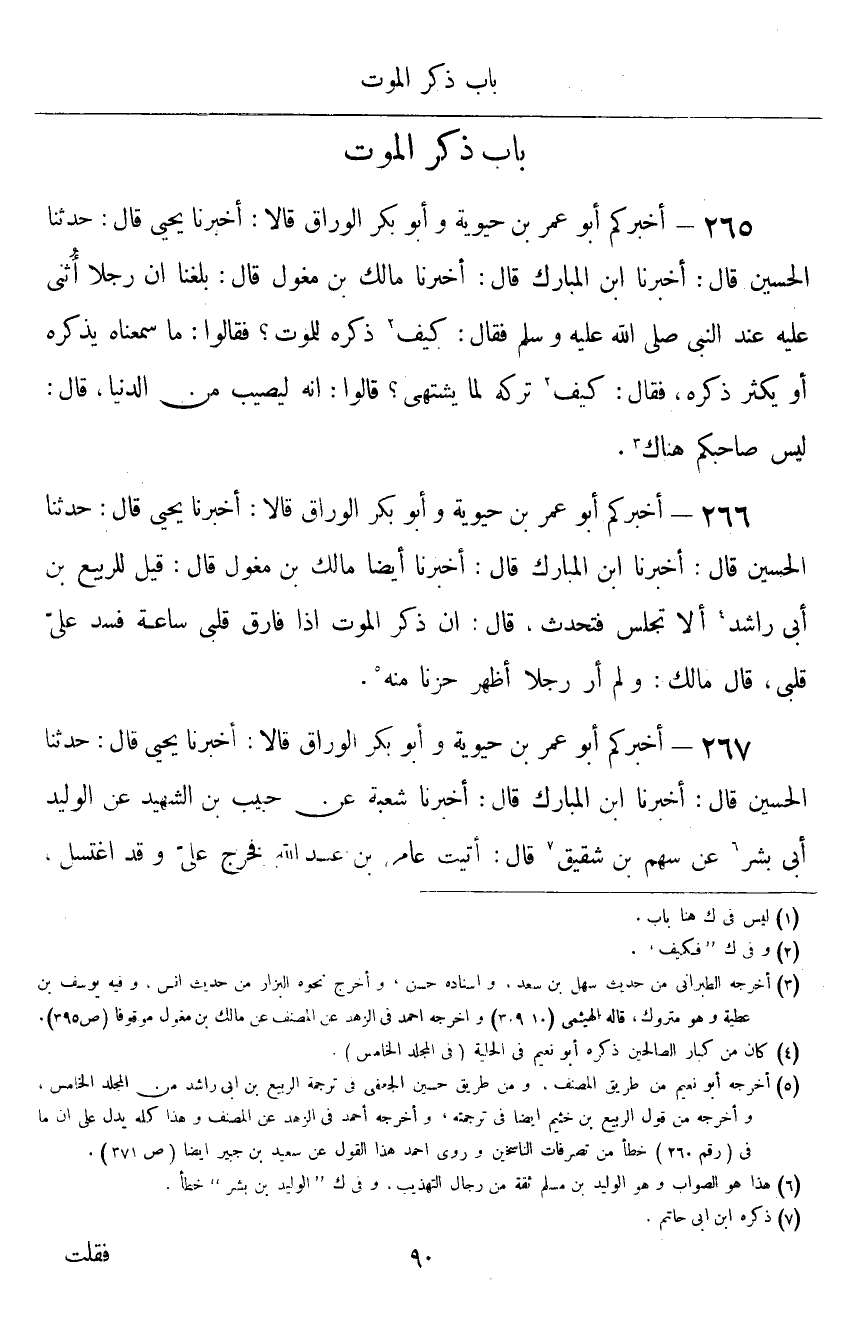 باب ذكر الموت
باب ذكر الموت
٢٦٥ – أخبركم أبو عمر بن حيوية و أبو بكر الوراق قالا : أخبرنا يحيى قال : حدثنا
الحسين قال : أخبرنا ابن المبارك قال : أخبرنا مالك بن مغول قال : بلغنا ان رجلا أُثنى
عليه عند النبى صلى الله عليه و سلم فقال : كيف٢ ذكره للموت ؟ فقالوا : ما سمعناه يذكره
أو يكثر ذكره، فقال : كيف٢ تركه لما يشتهى ؟ قالوا : انه ليصيب من الدنيا، قال :
ليس صاحبكم هناك٣ .
٢٦٦ – أخبركم أبو عمر بن حيوية و أبو بكر الوراق قالا : أخبرنا يحيى قال : حدثنا
الحسين قال : أخبرنا ابن المبارك قال : أخبرنا أيضا مالك بن مغول قال : قيل للربيع بن
أبى راشد٤ ألا تجلس فتحدث ، قال : ان ذكر الموت اذا فارق قلبى ساعة فسد علىّ
قلبى، قال مالك : و لم أر رجلا أظهر حزنا منه٥ .
٢٦٧ – أخبركم أبو عمر بن حيوية و أبو بكر الوراق قالا : أخبرنا يحيى قال : حدثنا
الحسين قال : أخبرنا ابن المبارك قال : أخبرنا شعبة عن حبيب بن الشهيد عن الوليد
أبى بشر٦ عن سهم بن شقيق٧ قال : أتيت عامر بن عبد الله فخرج علىّ و قد اغتسل ،
(١) ليس فى ك هنا باب .
(٢) و فى ك ”فكيف‘ .
(٣) أخرجه الطبرانى من حديث سهل بن سعد، و اسناده حسن ، و أخرج نحوه البزار من حديث انس، و فيه يوسف بن
عطية و هو متروك، قاله الهيثمى (١٠ ٣٠٩) و اخرجه احمد فى الزهد عن المصنف عن مالك بن مغول موقوفا (ص٣٩٥).
(٤) كان من كبار الصالحين ذكره أبو نعيم فى الحلية ( فى المجلد الخامس ) .
(٥) أخرجه أبو نعيم من طريق المصنف، و من طريق حسين الجعفى فى ترجمة الربيع بن ابى راشد من المجلد الخامس ،
و أخرجه من قول الربيع بن خثيم ايضا فى ترجمته ، و أخرجه أحمد فى الزهد عن المصنف و هذا كله يدل على ان ما
فى ( رقم ٢٦٠ ) خطأ من تصرفات الناسخين و روى احمد هذا القول عن سعيد بن جبير ايضا ( ص ٣٧١ ) .
(٦) هذا هو الصواب و هو الوليد بن مسلم ثقة من رجال التهذيب، و فى ك ”الوليد بن بشر“ خطأ .
(٧) ذكره ابن ابى حاتم .
٩٠
فقلت